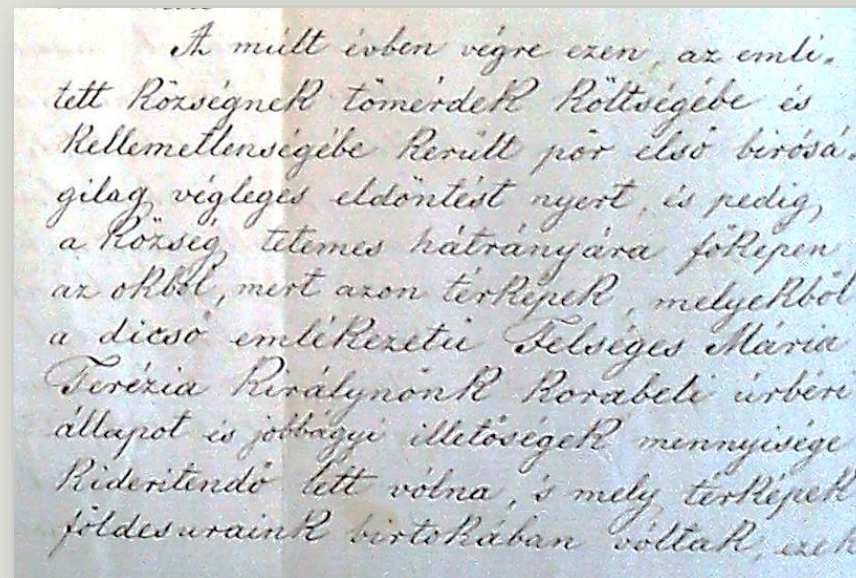 A múlt évben végre ezen, az emli-
tett Községnek tömérdek Költségébe és
Kellemetlenségébe Került pör első birósá-
gilag végleges eldöntést nyert, és pedig
a Község tetemes hátrányára főképen
az okból, mert azon térképek, melyekből
a dicső emlékezetü Felséges Mária
Terézia Királynőnk Korabeli úrbéri
állapot és jobbágyi illetőségek mennyisége
Kiderítendő lett vólna, 's mely térképek
földesuraink birtokában vóltak, ezek